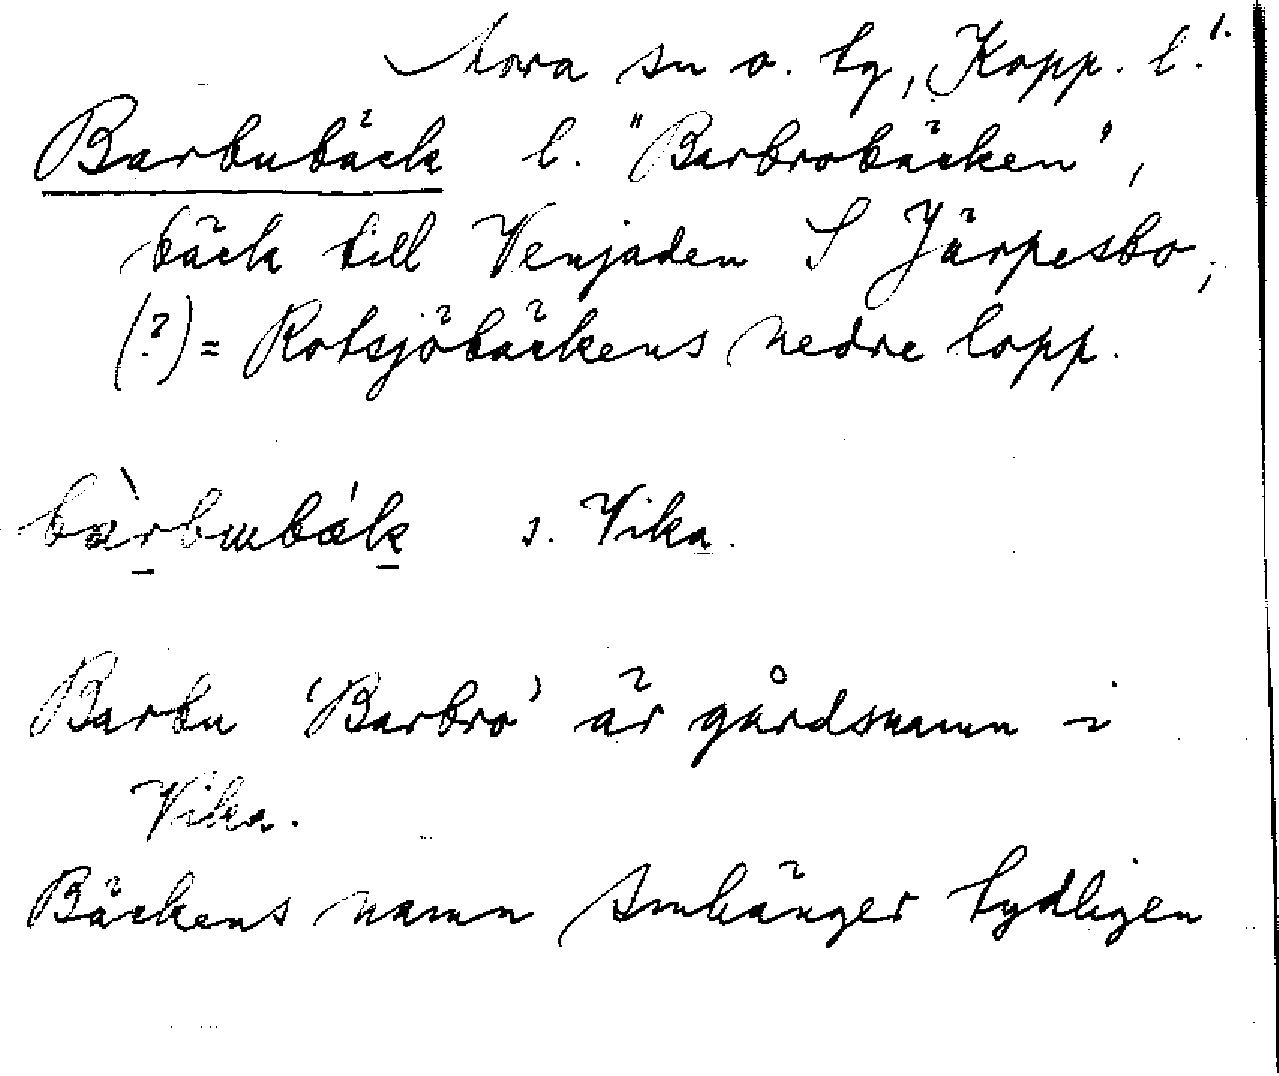 Mora sn o. tg, Kopp. l. 1.
Barbubäck l. "Barbrobäcken",
bäck till Venjaden S Järpesbo,
(?) = Rotsjöbäckens nedre lopp.
bàrbɯbák s. Vika.
Barbu 'Barbro' är gårdsnamn i
Vika.
Bäckens namn smhänger tydligen